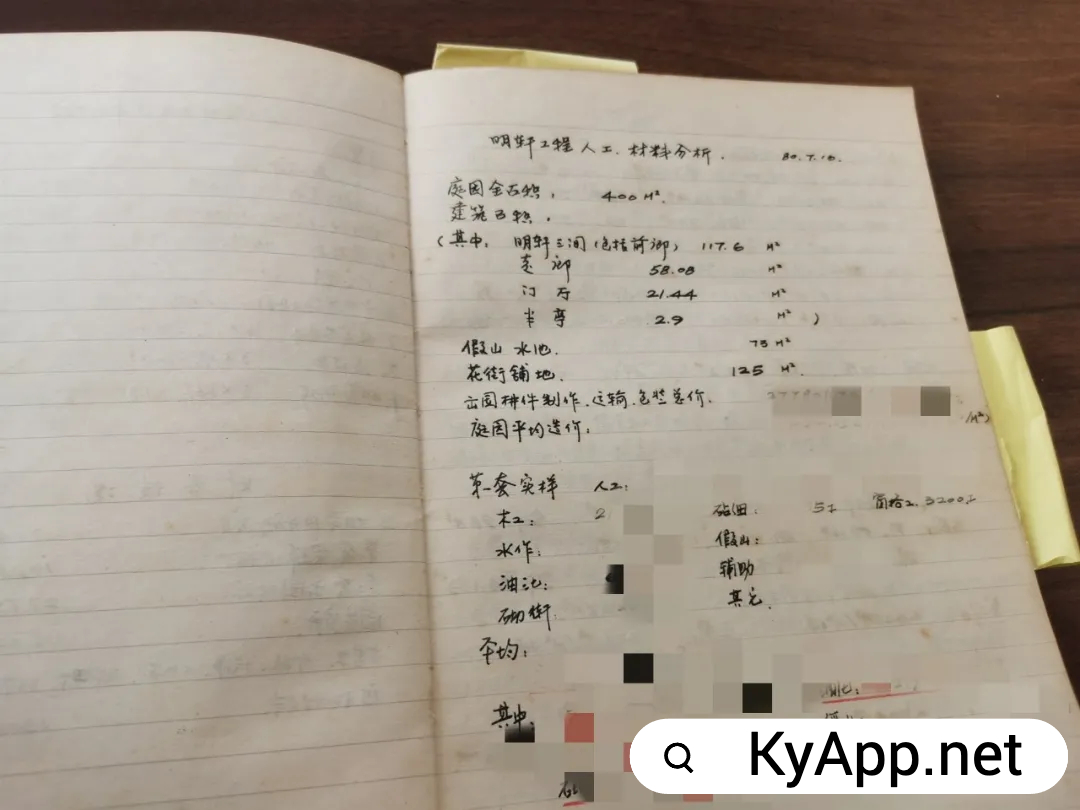 明轩工程人工、材料分析. 80.7.16.
庭园全占积, 400 M².
建筑面积,
(其中, 明轩三间(包括前廊) 117.6 M²
走廊 58.08 M²
门厅 21.44 M²
半亭 2.9 M² )
假山水池. 75 M²
花街铺地. 125 M².
出国拼件制作、运输、包装总价.
/M²)
庭园平均造价:
第一套实样 人工:
木工: 2
砖细: 窗格工 3200工
水作: 假山:
油漆: 辅助
砌街 其它.
平均:
其中:
KyApp.net